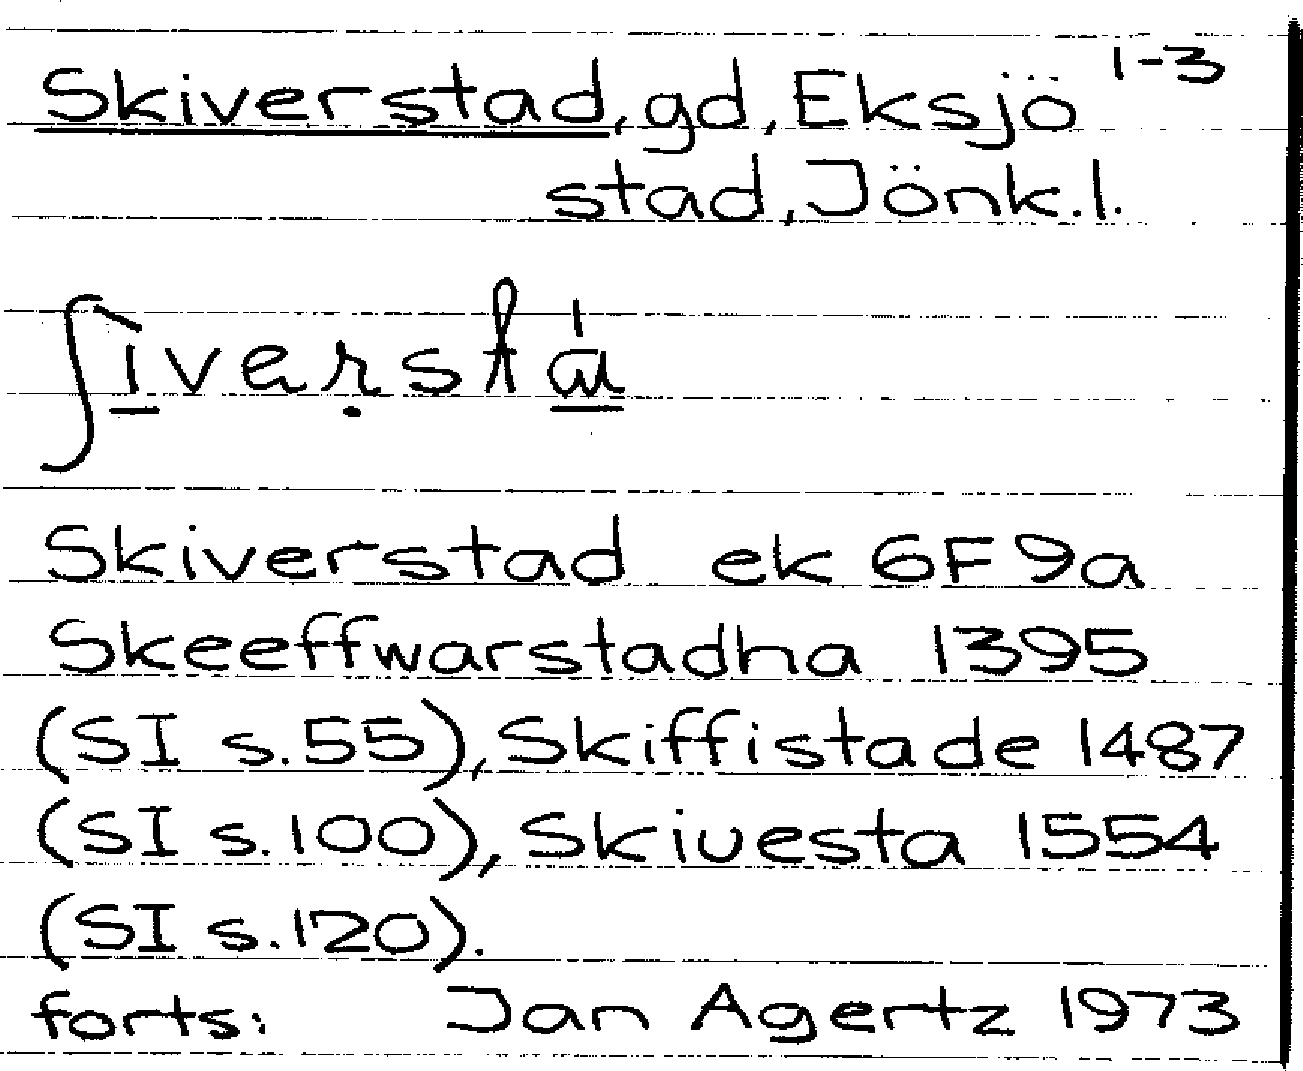 Skiverstad, gd, Eksjö 1-3
stad, Jönk.l.
Skiverstad ek 6F9a
Skeeffwarstadha 1395
(SI s.55), Skiffistade 1487
(SI s.100), Skiuesta 1554
(SI s.120).
forts: Jan Agertz 1973